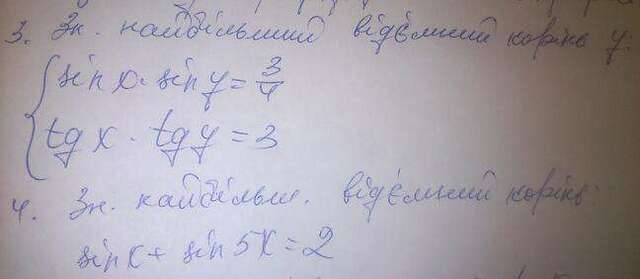 3. Зн. найбільший від'ємний корінь у.
sin x · sin y = 3/4
tg x · tg y = 3
4. Зн. найбільш. від'ємний корінь
sin x + sin 5x = 2